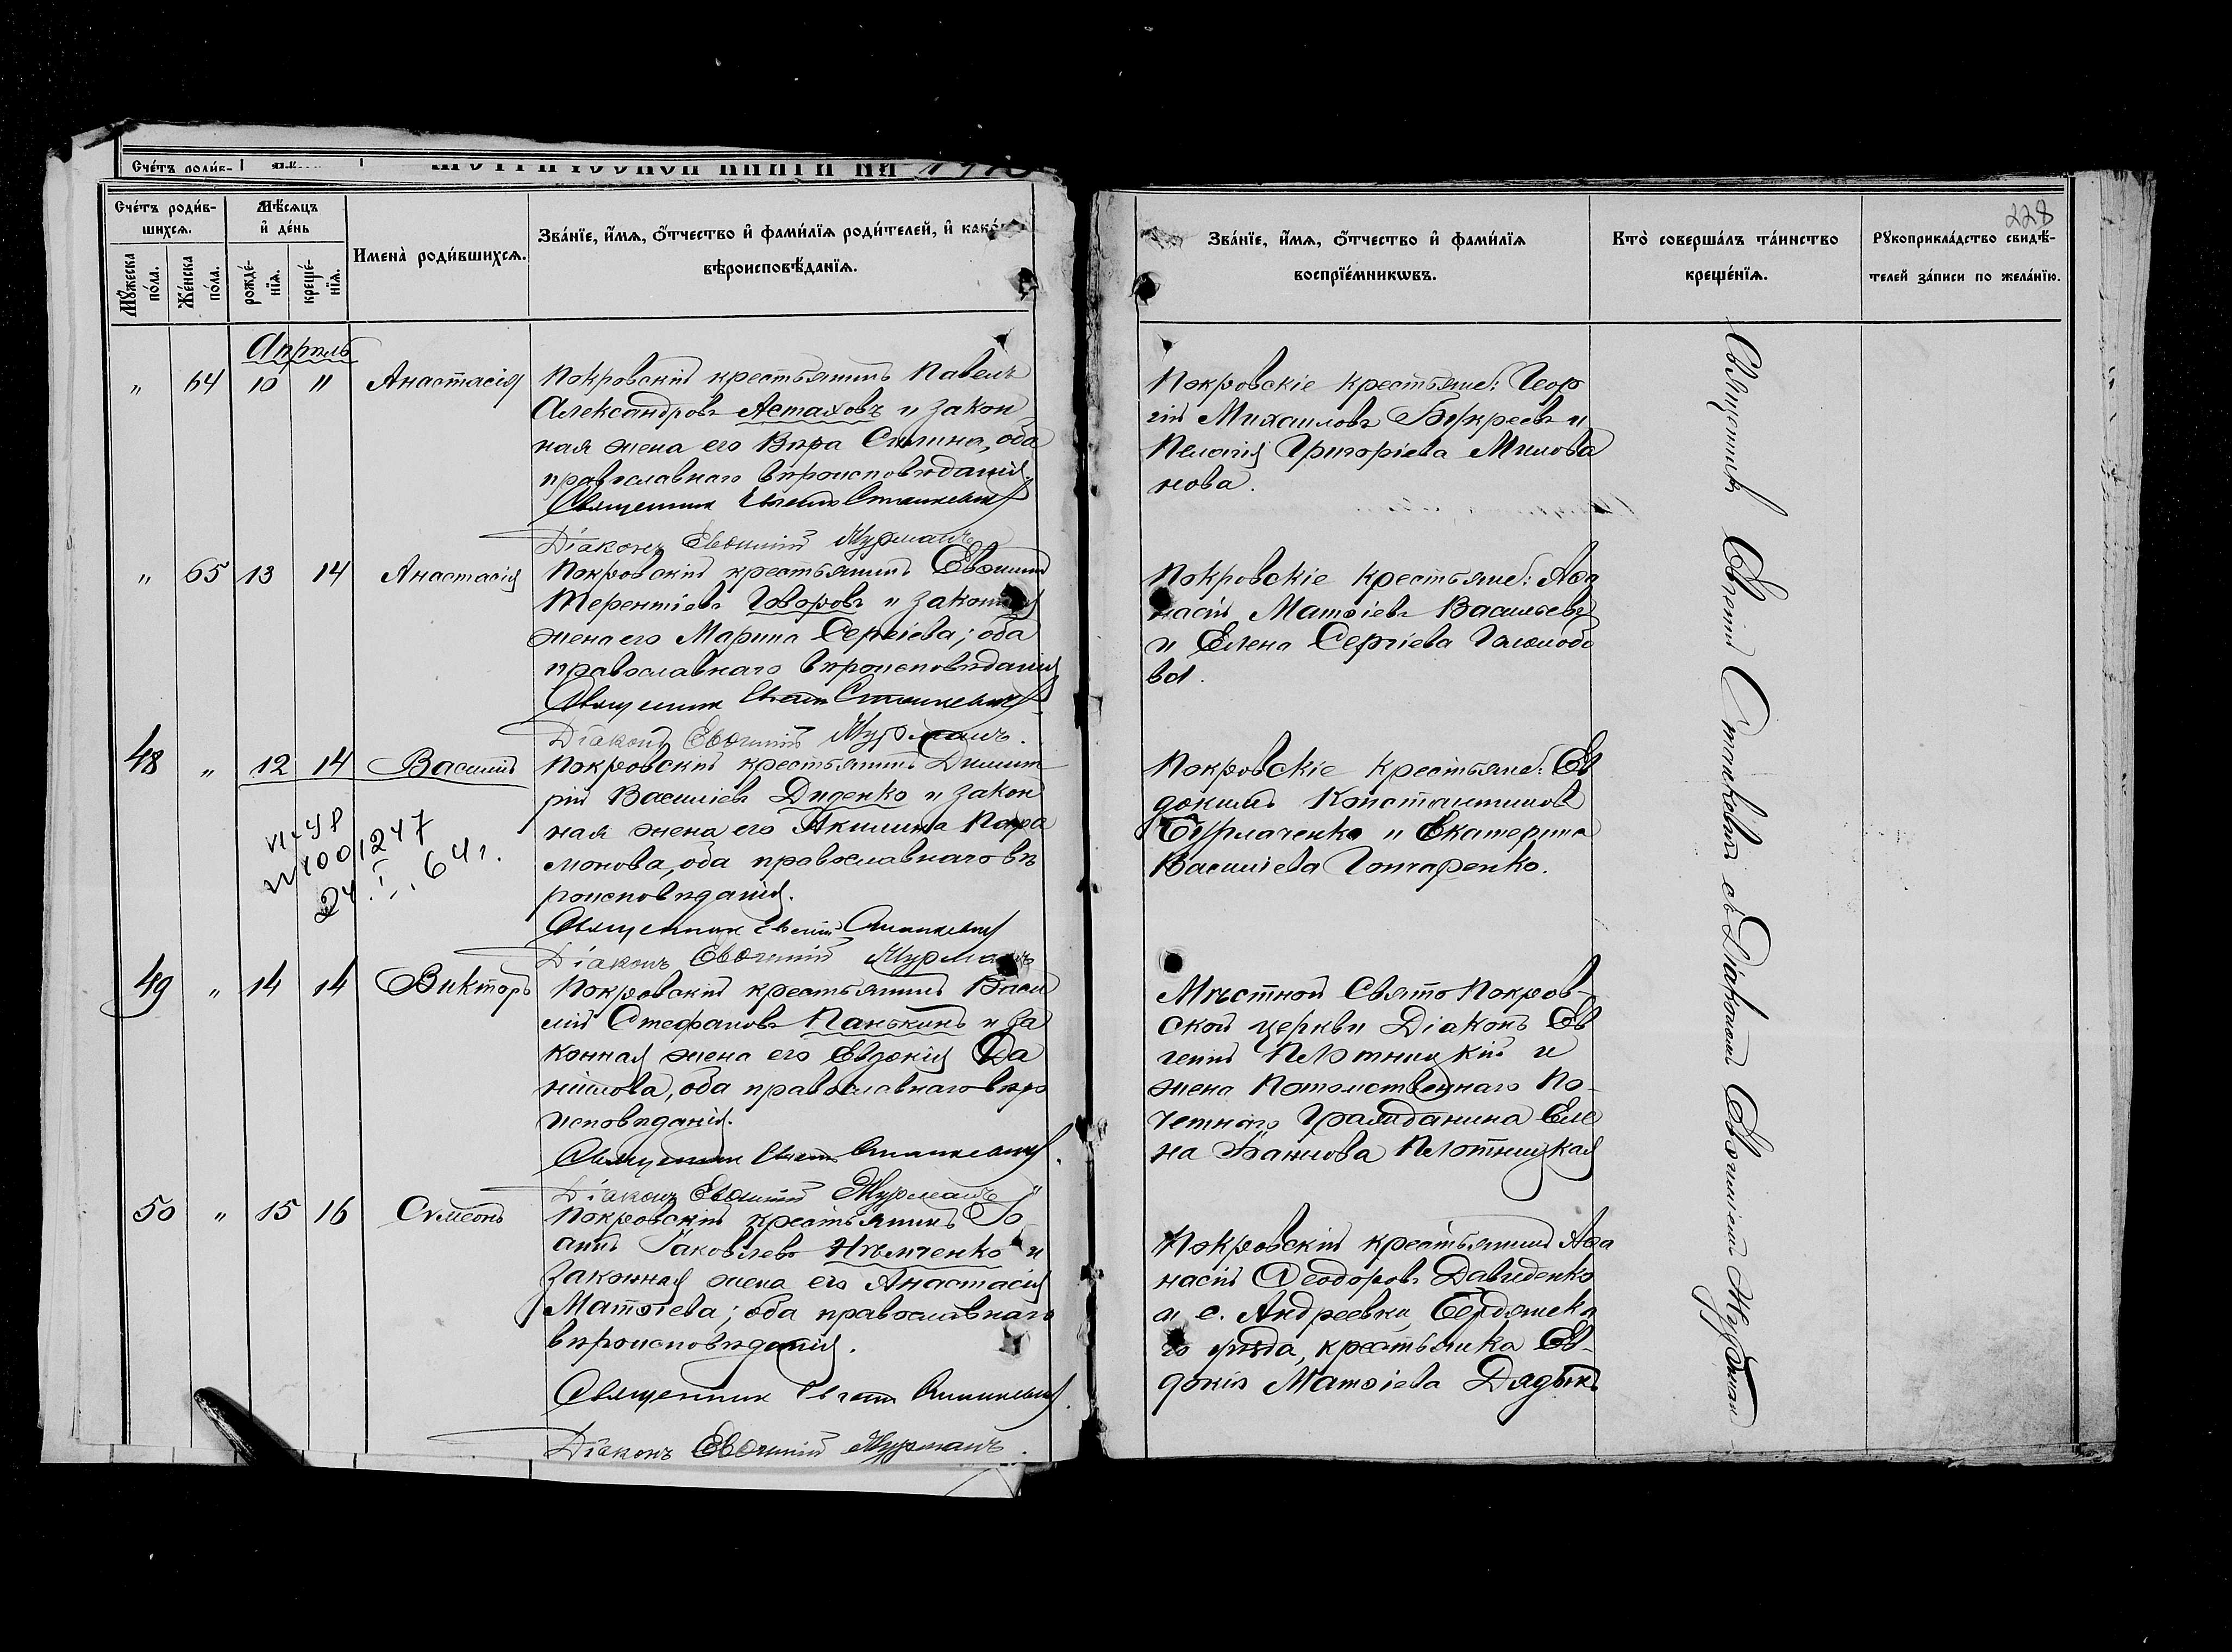 Счетъ роди́в-
Счéтъ роди́в-
шихсѧ.
Мѣсѧцъ
и де́нь
Мꙋжеска по́ла.
Же́нска по́ла.
рожде́-нїѧ.
креще́-нїѧ.
Имена̀ роди́вшихсѧ.
Зва́нїе, и́мѧ, о́тчество и фами́лїѧ роди́телей, и како́гѡ
вѣроисповѣ́данїѧ.
Апрѣль
" 64 10 11 Анастасія
Покровскій крестьянинъ Павелъ
Александровъ Астаховъ и закон
ная жена его Вѣра Силина, оба
православнаго вѣроисповѣданія
Священник Евгеній Станкевич
Діаконъ Евѳимій Журманъ
" 65 13 14 Анастасія
Покровскій крестьянинъ Евѳимій
Терентіевъ Говоровъ и законная
жена его Марина Сергіева; оба
православнаго вѣроисповѣданія
Священник Евгеній Станкевич
Діаконъ Евѳимій Журманъ.
48 " 12 14 Василій
Покровскій крестьянинъ Димит
рій Василіевъ Диденко и закон
ная жена его Акилина Пара
монова, оба православнаго вѣ
роисповѣданія.
Священник Евгеній Станкевич
Діаконъ Евѳимій Журманъ
VI-ЧР
№ 001247
24. I. 64 г.
49 " 14 14 Викторъ
Покровскій крестьянинъ Васи
лій Стефановъ Панькинъ и за
конная жена его Евдокія Да
ніилова, оба православнаго вѣро
исповѣданія.
Священник Евгеній Станкевич.
Діаконъ Евѳимій Журманъ
50 " 15 16 Сѵмеонъ
Покровскій крестьянинъ Іо
аннъ Іаковлевъ Нѣмченко и
законная жена его Анастасія
Матѳіева; оба православнаго
вѣроисповѣданія.
Священник Евгеній Станкевич.
Діаконъ Евѳимій Журманъ.
228
Зва́нїе, и́мѧ, о́тчество и фами́лїѧ
воспрїе́мникѡвъ.
Кто̀ соверша́лъ та́инство
креще́нїѧ.
Рꙋкоприкла́дство свидѣ́-
телей за́писи по жела́нїю.
Покровскіе крестьяне: Геор
гій Михаиловъ Букреевъ и
Пелагія Григоріева Милова
нова.
Покровскіе крестьяне: Аѳа
насій Матѳіевъ Васильевъ
и Елена Сергіева Голомодо
ва.
Покровскіе крестьяне: Ев
докимъ Константиновъ
Бурлаченко и Екатерина
Василіева Гончаренко.
Мѣстной Свято Покров-
ской церкви Діаконъ Ев
геній Плотницкій и
жена Потомственнаго По-
четнаго Гражданина Еле
на Іоаннова Плотницкая
Покровскій крестьянинъ Аѳа
насій Ѳеодоровъ Давиденко
и с. Андреевки, Бердянска
го уѣзда, крестьянка Ев-
докія Матѳіева Дядинъ
Священникъ Евгеній Станкевичъ съ Діакономъ Евѳиміемъ Журман